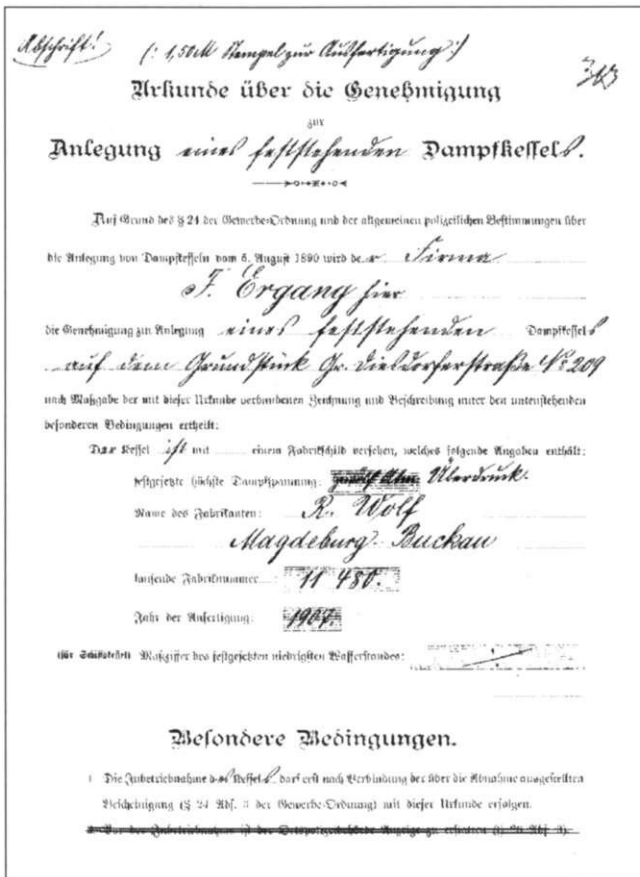 Abschrift! (: 1,50 M Stempel zur Ausfertigung :)
Urkunde über die Genehmigung
zur
Anlegung eines feststehenden Dampfkessels.
Auf Grund des § 24 der Gewerbe-Ordnung und der allgemeinen polizeilichen Bestimmungen über
die Anlegung von Dampfkesseln vom 5. August 1890 wird der Firma
F. Ergang hier
die Genehmigung zur Anlegung eines feststehenden Dampfkessels
auf dem Grundstück Gr. Diesdorferstraße No 209
nach Maßgabe der mit dieser Urkunde verbundenen Zeichnung und Beschreibung unter den untenstehenden
besonderen Bedingungen ertheilt:
Der Kessel ist mit einem Fabrikschild versehen, welches folgende Angaben enthält:
festgesetzte höchste Dampfspannung: zwölf Atm. Überdruck.
Name des Fabrikanten: R. Wolf
Magdeburg-Buckau
laufende Fabriknummer: 11 480.
Jahr der Anfertigung: 1907.
(für Schiffskessel) Maßziffer des festgesetzten niedrigsten Wasserstandes:
Besondere Bedingungen.
1 Die Inbetriebnahme des Kessels darf erst nach Verbindung der über die Abnahme ausgestellten
Bescheinigung (§ 24 Abs. 3 der Gewerbe-Ordnung) mit dieser Urkunde erfolgen.
Vor der Inbetriebnahme ist der Ortspolizeibehörde Anzeige zu erstatten